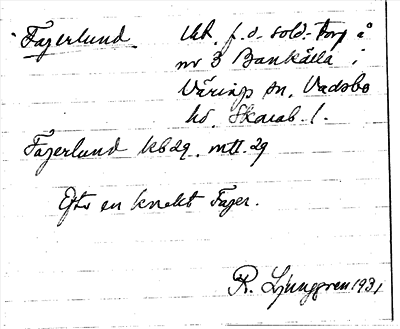 Fägerlund Ukt. f. d. sold.-torp å
nr 3 Bankälla i
Värings sn, Vadsbo
hd. Skarab. l.
Fägerlund kb 29. mtl. 29
Efter en knekt Fager.
R. Ljunggren 1931